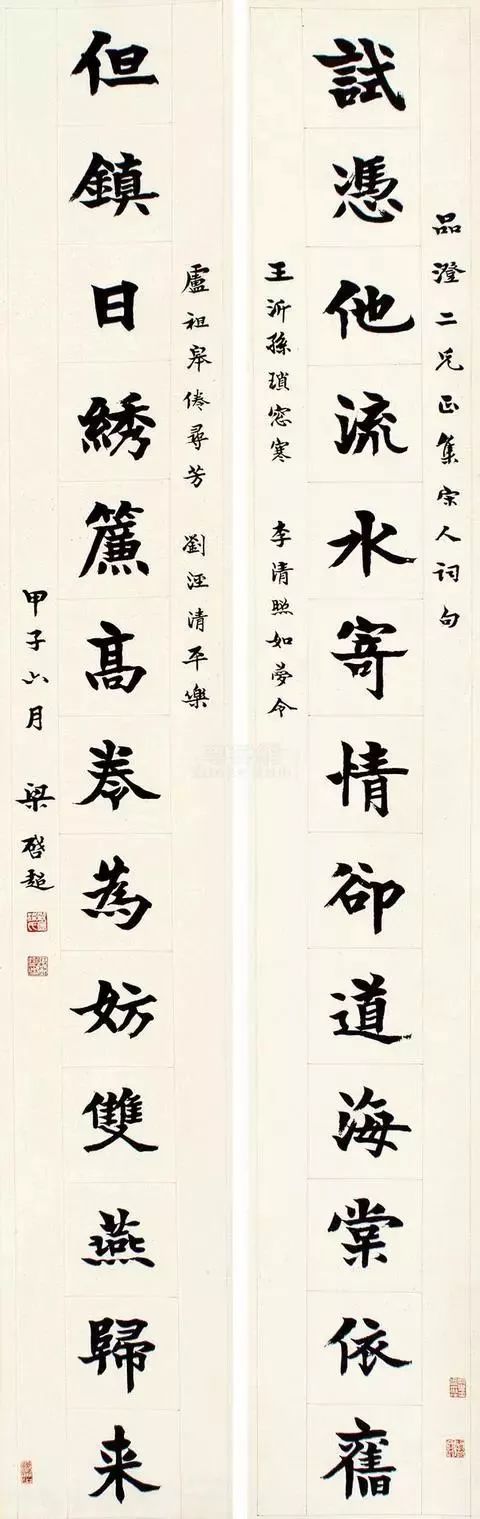 品澄二兄正集宋人词句
試憑他流水寄情卻道海棠依舊
王沂孫瑣窓寒 李清照如夢令
盧祖皋倦尋芳 劉涇清平樂
但鎮日綉簾高卷為妨雙燕歸来
甲子六月 梁啓超